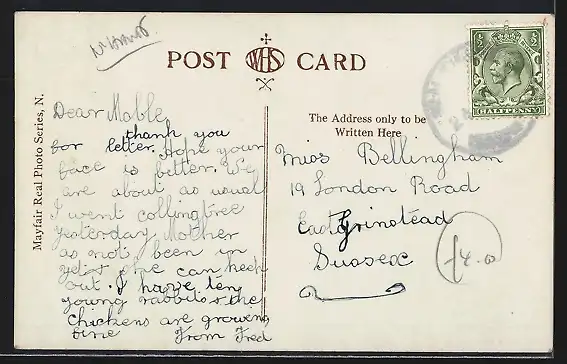 POST WHS CARD
HALFPENNY
Mayfair Real Photo Series, N.
The Address only to be
Written Here
Dear Mable,
thank you
for letter. Hope your
face is better. We
are about as usual
I went collingtree
yesterday Mother
as not been in
yet she can keep
out. I have ten
young rabbits & the
chickens are growing
fine From Fred
Miss Bellingham
19 London Road
East Grinstead
Sussex
£4.0